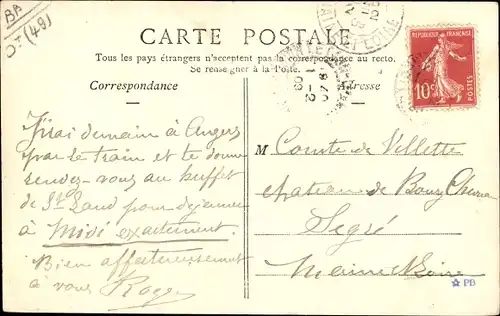 BA
DJ (49)
CARTE POSTALE
Tous les pays étrangers n'acceptent pas la correspondance au recto.
Se renseigner à la Poste.
Correspondance
Adresse
REPUBLIQUE FRANÇAISE
10c
POSTES
MAINE ET LOIRE
J'irai demain à Angers
par le train et te donne
rendez-vous au buffet
de St Laud pour déjeuner
à Midi exactement.
Bien affectueusement
à vous Roger
M Comte de Villette
chateau de Bouzy
Segré
Maine & Loire
PD